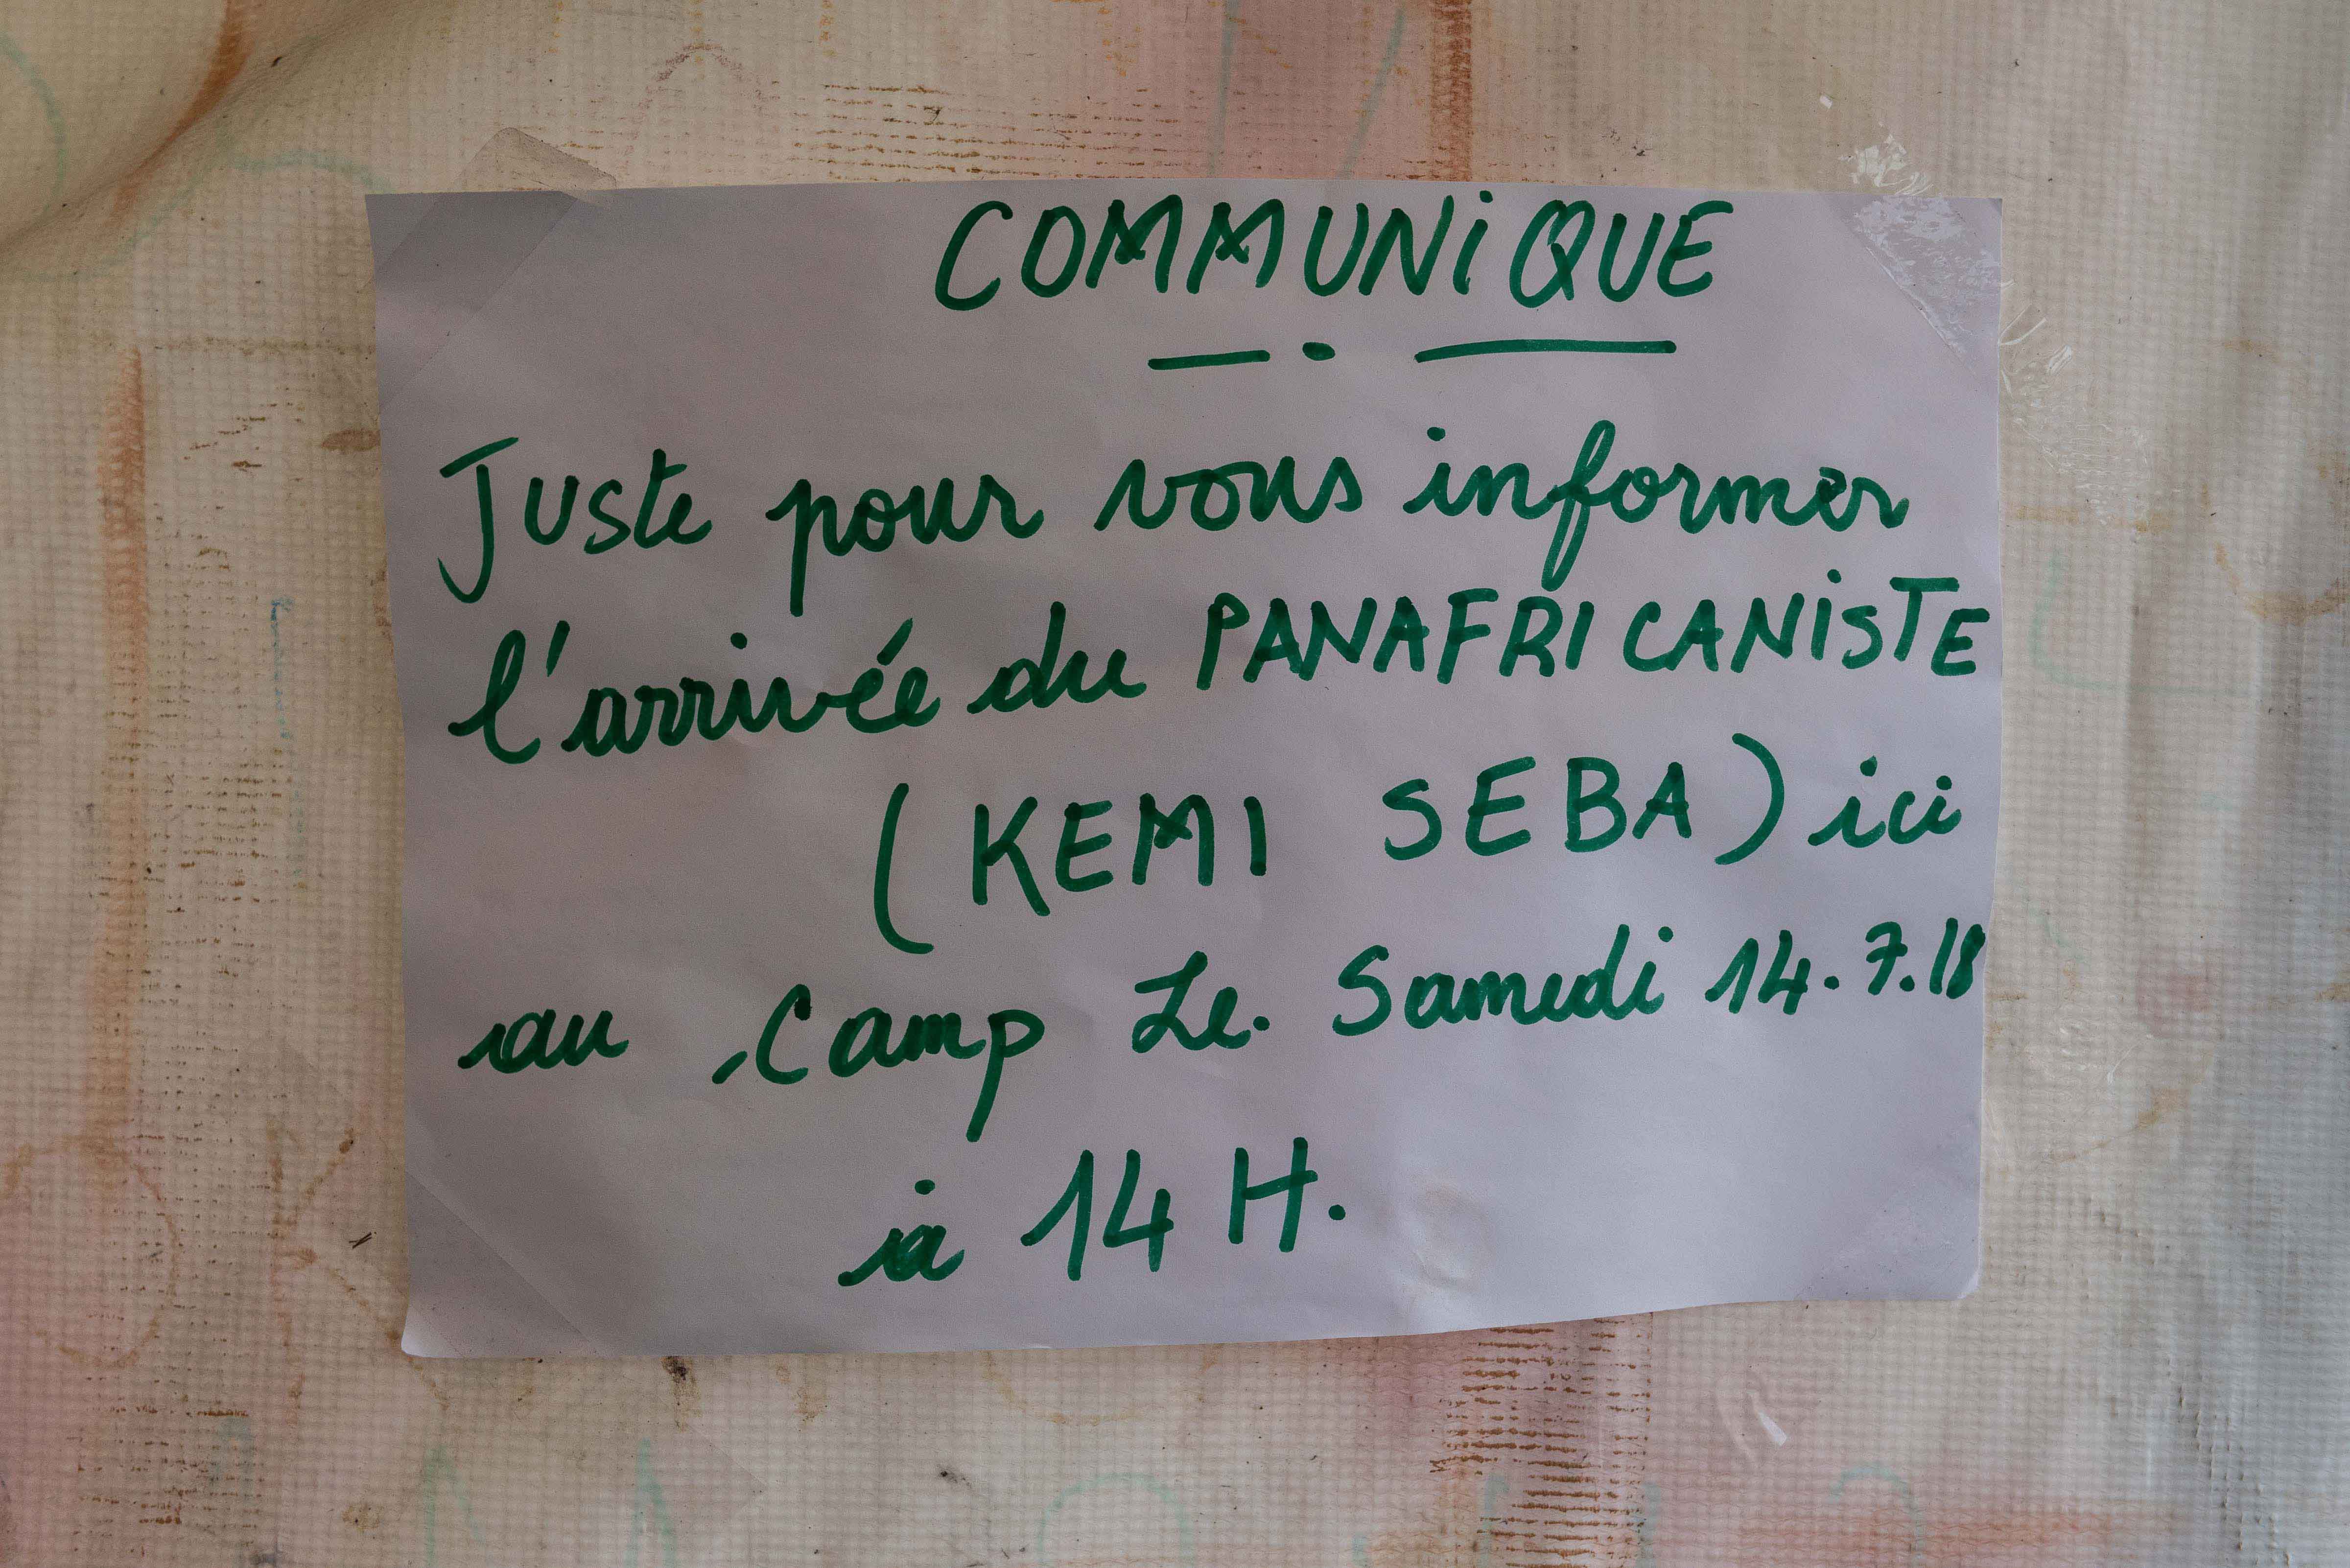 COMMUNiQUE
Juste pour vous informer
l'arrivée du PANAFRICANiSTE
(KEMI SEBA) ici
au Camp Le. Samedi 14.7.18
à 14 H.